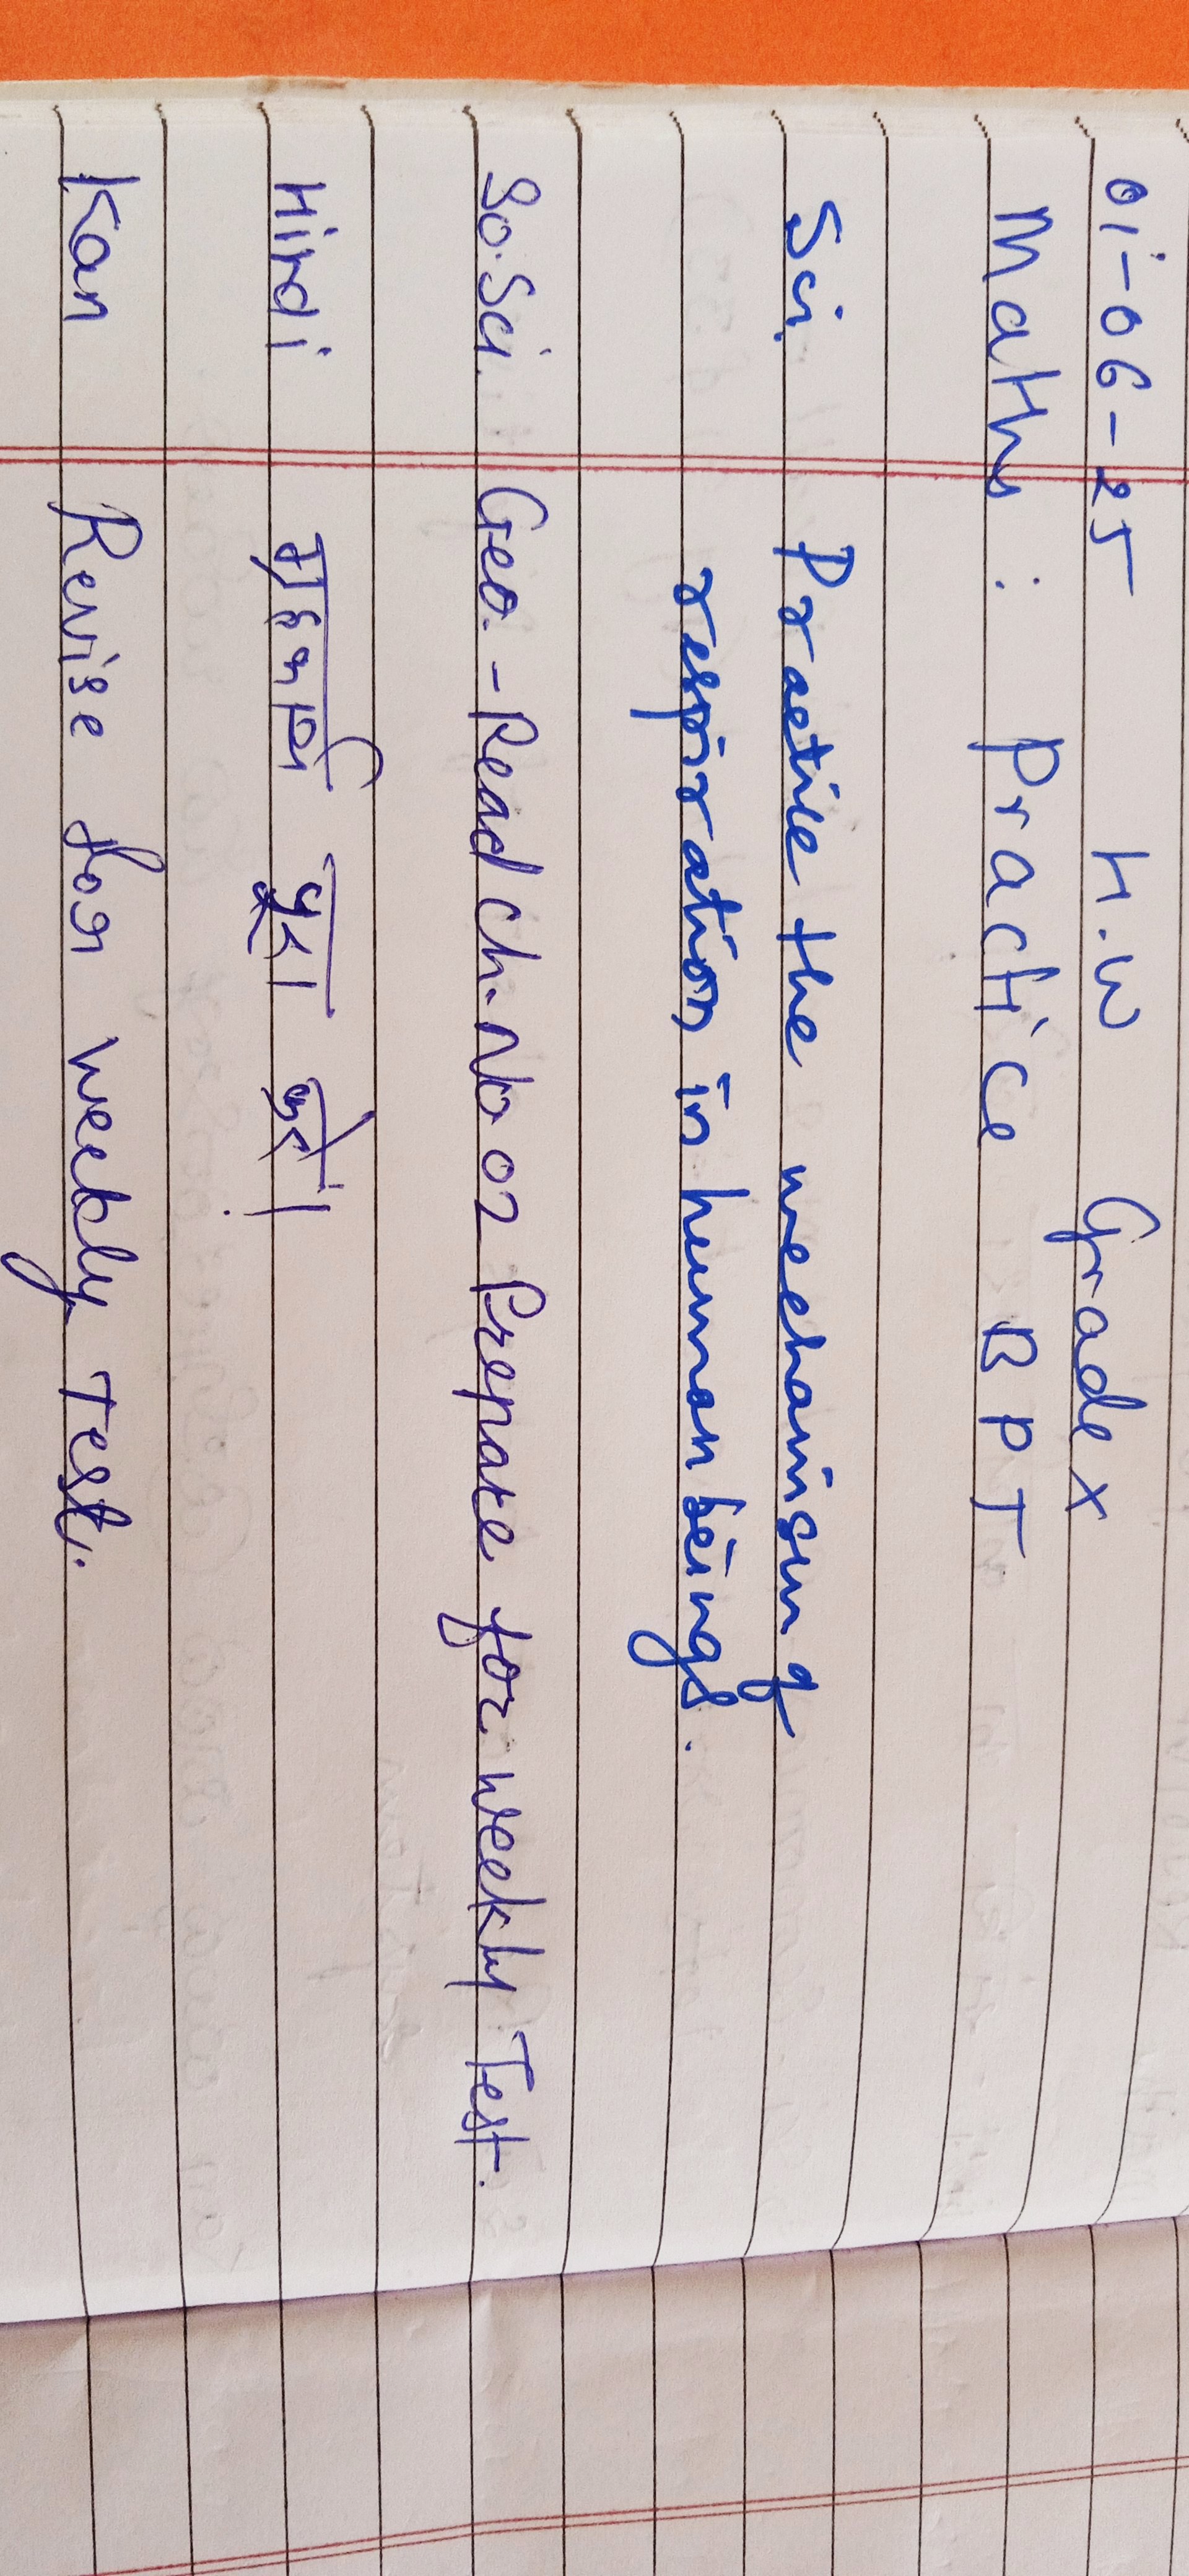 01-06-25 H.W Grade X
Maths : Practice BPT
Sci. Practice the mechanism of
respiration in human beings.
So.Sci. Geo. - Read ch. No 02 Prepare for weekly Test.
Hindi गृहकार्य पूरा करें।
Kan Revise for weekly Test.